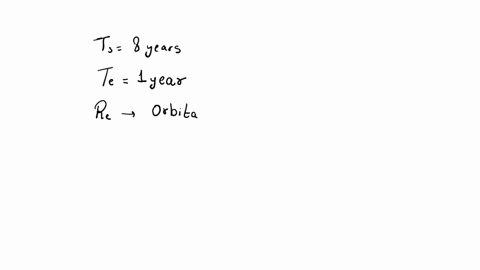 Ts = 8 years
Te = 1 year
Re → Orbita